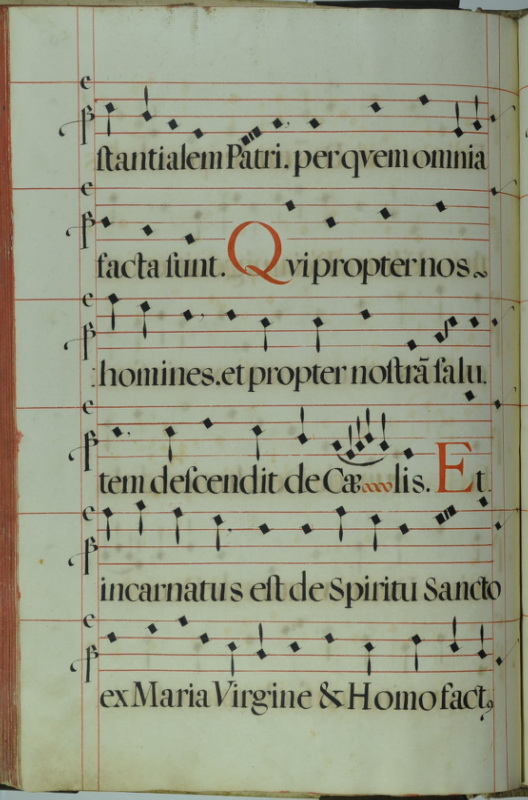 ſtantialem Patri. per qvem omnia
facta ſunt. Qvi propter nos
homines. et propter noſtrã ſalu.
tem deſcendit de Cælis. Et
incarnatus eſt de Spiritu Sancto
ex Maria Virgine & Homo fact9